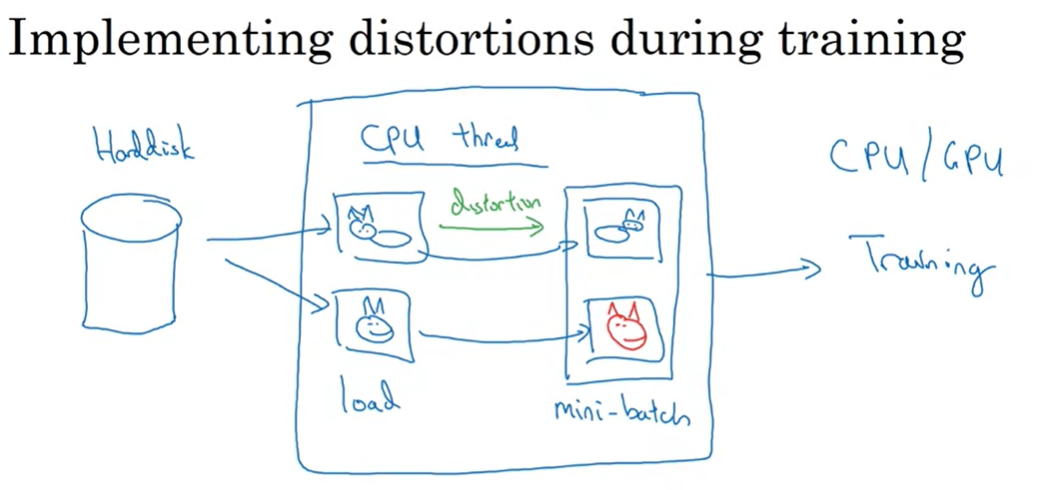 Implementing distortions during training
Harddisk
CPU thread
distortion
load
mini-batch
CPU/GPU
Training